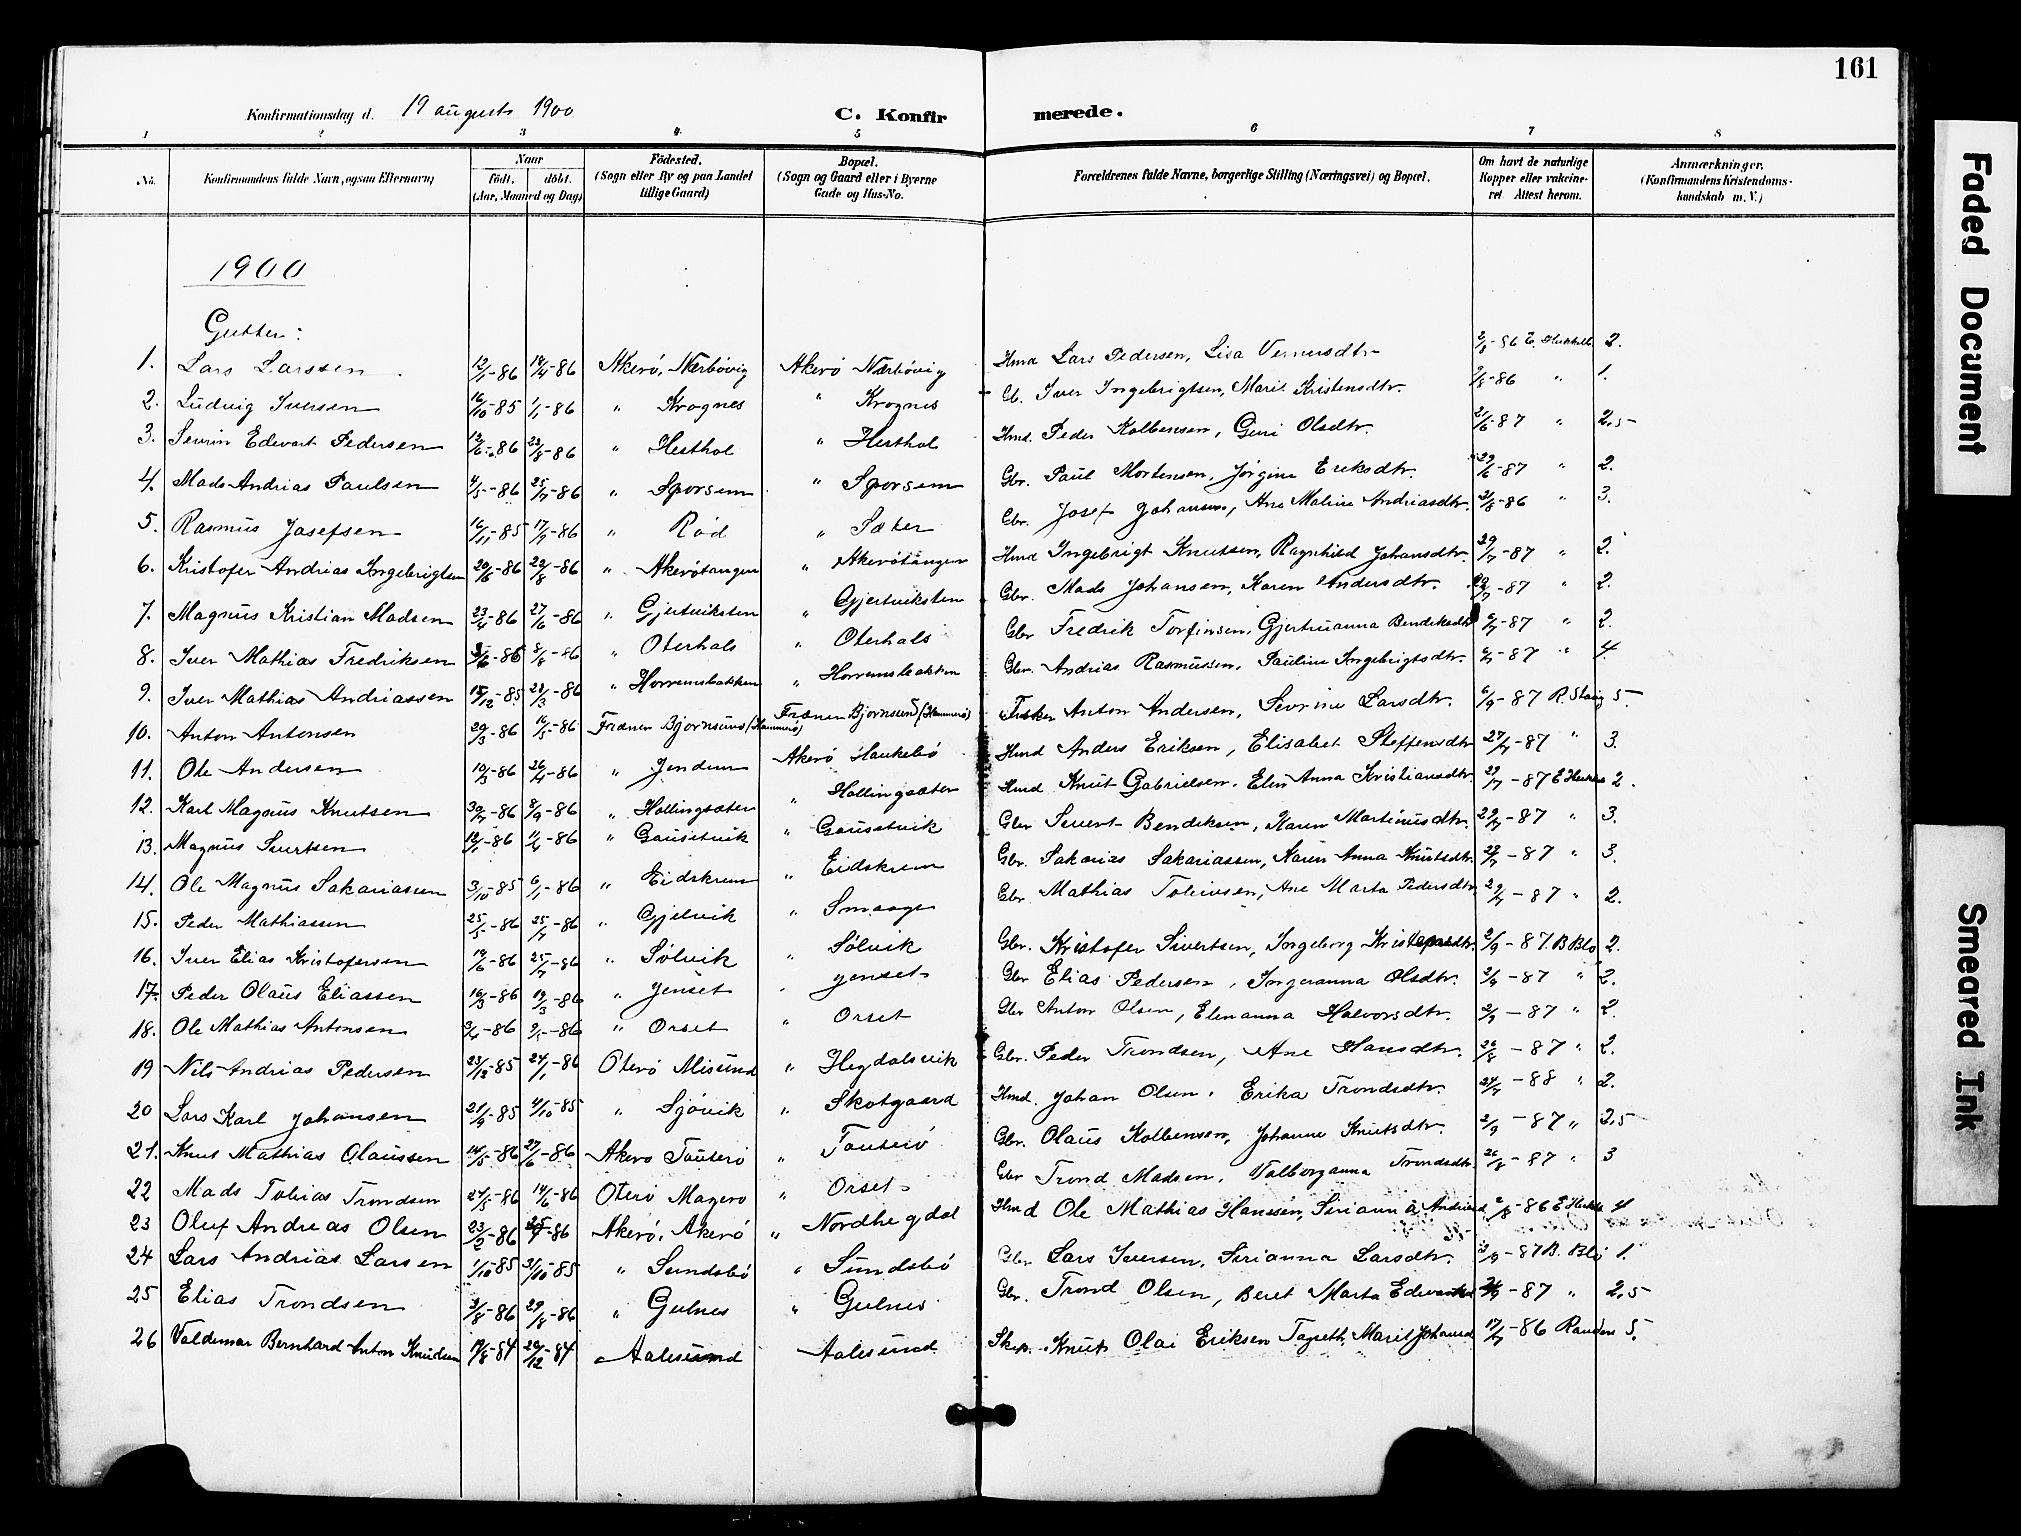 161
Konfirmationsdag d. 19 augusts 1900 C. Konfirmerede.
1 2 3 4 5 6 7 8
No. Konfirmandens fulde Navn, ogsaa Efternavn) Naar født. døbt. (Aar, Maaned og Dag) Fødested. (Sogn eller By og paa Landet tillige Gaard) Bopæl. (Sogn og Gaard eller i Byerne Gade og Hus-No. Forældrenes fulde Navne, borgerlige Stilling (Næringsvei) og Bopæl. Om havt de naturlige Kopper eller vakcineret Attest herom. Anmærkninger. (Konfirmandens Kristendomskundskab m. V.)
1900
Gutter:
1. Lars Larssen 12/1-86 14/4-86 Akerø, Nærbøvig Akerø Nærbøvig Hmd Lars Pedersen, Lisa Vernersdtr 2/8-86 2.
2. Ludvig Iversen 16/10-85 1/1-86 " Krognes " Krognes Gb. Iver Ingebrigtsen, Marit Kristensdtr. 2/8-86 " 1.
3. Severin Edevart Pedersen 12/6-86 22/8-86 " Hesthol " Hesthol Hmd. Peder Kolbensen, Guri Olsdtr. 21/6-87 " 2,5
4. Mads Andrias Paulsen 4/5-86 25/7-86 " Sporsem " Sporsem Gbr. Paul Mortensen, Jørgine Eriksdtr. 29/6-87 " 2.
5. Rasmus Josefsen 16/11-85 17/7-86 " Rød " Sæter Gbr. Josef Johansen, Ane Maline Andriasdtr. 2/8-86 " 3.
6. Kristofer Andrias Ingebrigtsen 20/6-86 22/8-86 " Akerøtangen " Akerøtangen Hmd Ingebrigt Knutsen, Ragnhild Johansdtr. 29/7-87 " 2.
7. Magnus Kristian Madsen 23/4-86 27/6-86 " Gjertviksten " Gjertviksten Gbr. Mads Johansen, Karen Andersdtr. -87 " 2.
8. Iver Mathias Fredriksen 8/8-86 " Oterhals " Oterhals Gbr Fredrik Torfinsen, Gjertruanna Bendiksdtr -87 " 2.
9. Iver Mathias Andriassen 15/12-85 28/3-86 " Horremsbakken " Horremsbakken Gbr. Andrias Rasmussen, Pauline Ingebrigtsdtr. -87 " 4.
10. Anton Antonsen 29/3-86 16/5-86 Frænen Bjørnsund (Hammerø) Frænen Bjørnsund (Hammerø) Fisker Anton Andersen, Sevrine Larsdtr. 6/9-87 5.
11. Ole Andersen 10/3-86 26/4-86 " Jendem Akerø Haukebø Hmd Anders Eriksen, Elisabet Steffensdtr 27/7-87 " 3.
12. Karl Magnus Knutsen 30/7-86 8/9-86 " Hollingsæter " Hollingsæter Hmd Knut Gabrielsen, Elen Anna Kristiansdtr. 29/7-87 2.
13. Magnus Sivertsen 12/1-86 11/4-86 " Gausetvik " Gausetvik Gbr Sivert Bendiksen, Karen Martinusdtr. 29/7-87 " 3.
14. Ole Magnus Sakariassen 3/10-85 6/1-86 " Eidskrem " Eidskrem Gbr. Sakarias Sakariassen, Karen Anna Knutsdtr. -87 " 3.
15. Peder Mathiassen 25/5-86 25/7-86 " Gjelvik " Smaage Gbr Mathias Tobiassen, Ane Marta Pedersdtr 29/7-87 " 2.
16. Iver Elias Kristofersen 14/6-86 25/7-86 " Sølvik " Sølvik Gbr. Kristofer Sivertsen, Ingeborg Kristofersdtr. 2/9-87 B Blø 2.
17. Peder Olaus Eliassen 16/3-86 19/5-86 " Jenset " Jenset Gbr Elias Pedersen, Ingeranna Olsdtr. 2/9-87 " 2.
18. Ole Mathias Antonsen -86 -86 " Orset " Orset Gbr Anton Olsen, Elenanna Halvorsdtr. 2/9-87 " 2.
19 Nils Andrias Pedersen 23/12-85 24/1-86 Oterø Misund " Hegdalsvik Gbr. Peder Trondsen, Ane Hansdtr. 26/8-87 " 2.
20 Lars Karl Johansen 21/9-85 4/10-85 " Sjøvik " Skotgaard Hmd. Johan Olsen, Erika Trondsdtr. 24/7-88 " 2.
21. Knut Mathias Olaussen 14/5-86 27/6-86 Akerø Tauterø " Tauterø Gbr. Olaus Kolbensen, Johanne Knutsdtr. 2/9-87 " 2,5
22 Mads Tobias Trondsen 24/5-86 14/6-86 Oterø Magerø " Orset Gbr Trond Madsen, Valborganna Trondsdtr. 26/8-87 " 3
23 Oluf Andreas Olsen 23/2-86 -86 Akerø, Akerø " Nordhegdal Hmd Ole Mathias Hanssen, Serianna Andriasd. 2/8-86 4
24 Lars Andrias Larsen 1/10-85 31/10-85 " Sundsbø " Sundsbø Gbr Lars Iversen, Serianna Larsdtr. 2/9-87 B. Blø 1.
25 Elias Trondsen 3/8-86 29/8-86 " Gulnes " Gulnes Gbr. Trond Olsen, Beret Marta -87 " 2,5
26 Valdemar Bernhard Anton Knudsen 17/8-84 26/12-84 Aalesund Aalesund Skip. Knut Olai Eriksen Marit Johansd 17/7-86 5.
Faded Document
Smeared Ink